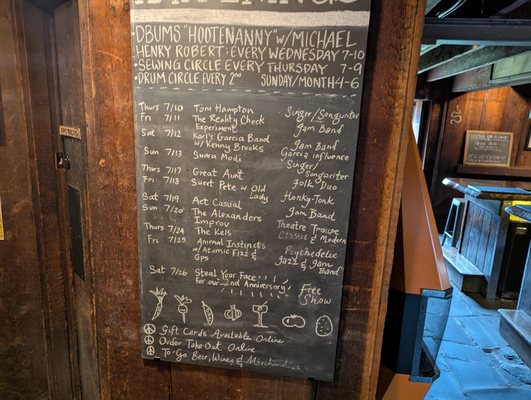 HAPPENINGS
•DBUMS "HOOTENANNY" W/MICHAEL
HENRY ROBERT: EVERY WEDNESDAY 7-10
•SEWING CIRCLE EVERY THURSDAY 7-9
•DRUM CIRCLE EVERY 2nd SUNDAY/MONTH 4-6
Thurs 7/10 Tom Hampton Singer/Songwriter
Fri 7/11 The Reality Check Experiment Jam Band
Sat 7/12 Karl's Garcia Band w/ Kenny Brooks Jam Band Garcia influence
Sun 7/13 Swara Modi Singer/Songwriter
Thurs 7/17 Great Aunt Folk Duo
Fri 7/18 Sweet Pete w/ Old Lady Honky-Tonk
Sat 7/19 Act Casual Jam Band
Sun 7/20 The Alexanders Improv Theatre Troupe
Thurs 7/24 The Kels Classic & Modern
Fri 7/25 Animal Instincts w/Atomic Fizz & Gps Psychedelic Jazz & Jam Band
Sat 7/26 Steal Your Face!!! Free
For our 2nd Anniversary!!! Show
Gift Cards Available Online
Order Take Out Online
To-Go Beer, Wines & Merchandise